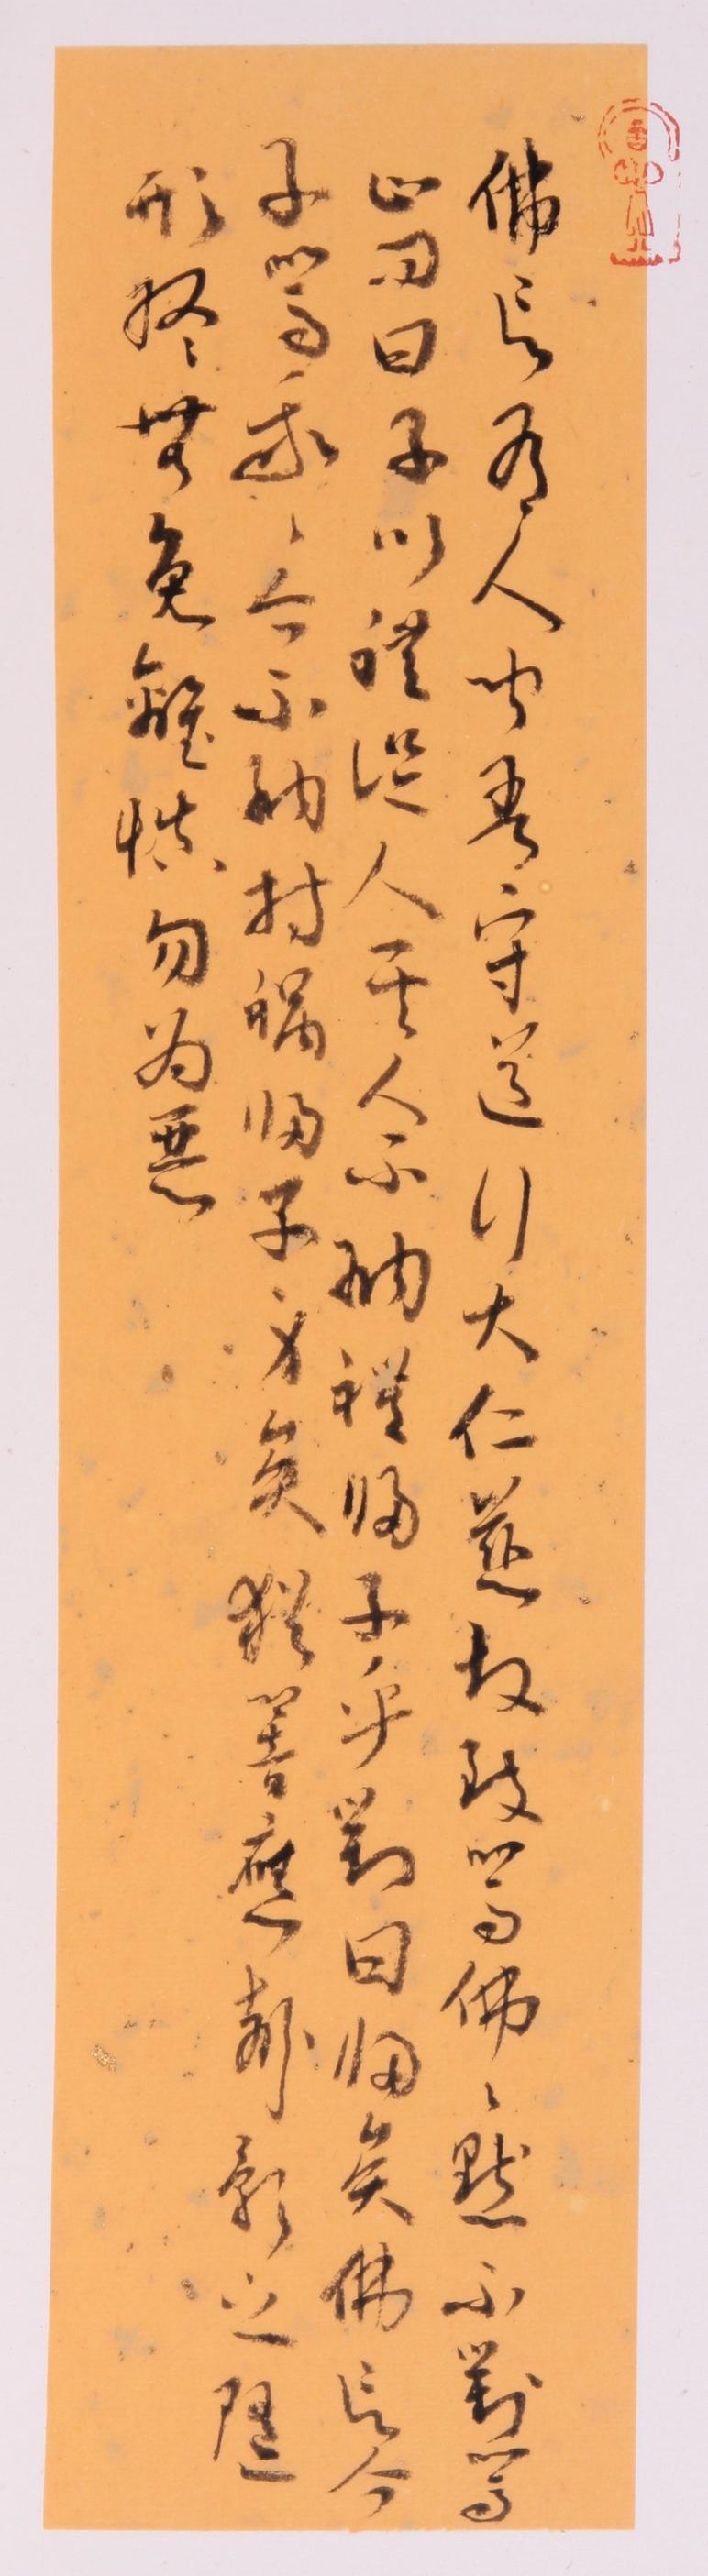 佛言有人聞吾守道行大仁慈故致罵佛佛默不對罵
止問曰子以禮從人其人不納禮歸子乎對曰歸矣佛言今
子罵我我今不納持禍歸子身矣猶響應聲影之隨
形終無免離慎勿為惡